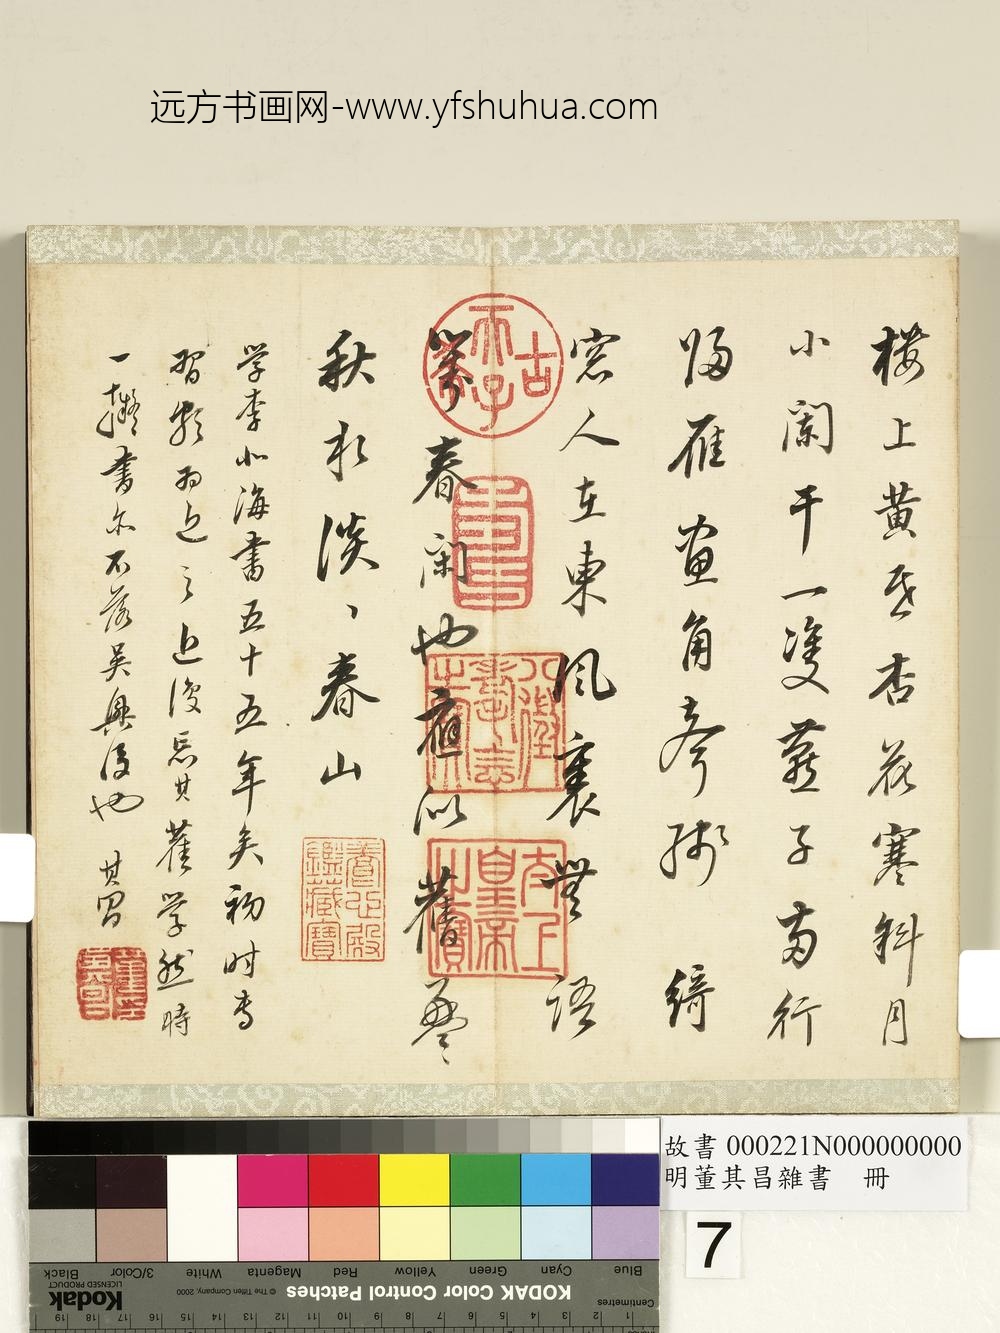 远方书画网-www.yfshuhua.com
楼上黄昏杏花寒斜月
小闌干一雙燕子兩行
歸雁畫角聲殘綺
窓人在東風裏無語
對春閑也應似舊盈〻
秋水淡〻春山
学李北海書五十五年矣初时專
習 之近復忘其舊学然時
一擬書亦不落吳興後也 其昌
古稀天子
壽
八徵耄念之寶
太上皇帝之寶
養心殿鑑藏寶
董其昌
故書 000221N000000000
明董其昌雜書 冊
7
Blue Cyan Green Yellow Red Magenta White 3/Color Black
KODAK Color Control Patches
© The Tiffen Company, 2000
Kodak
LICENSED PRODUCT
Centimetres
1 2 3 4 5 6 7 8 9 10 11 12 13 14 15 16 17 18 19